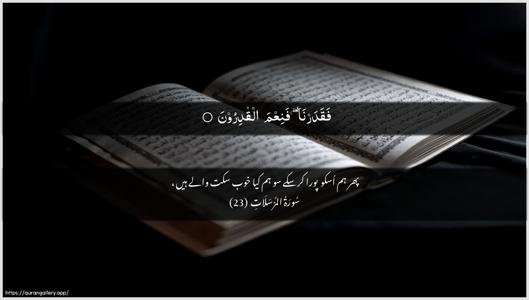 فَقَدَرْنَا ۖۗ فَنِعْمَ الْقٰدِرُوْنَ ○
پھر ہم اُسکو پورا کر سکے سو ہم کیا خوب سکت والے ہیں،
سُورَةُ المُرۡسَلَات (23)
https://qurangallery.app/